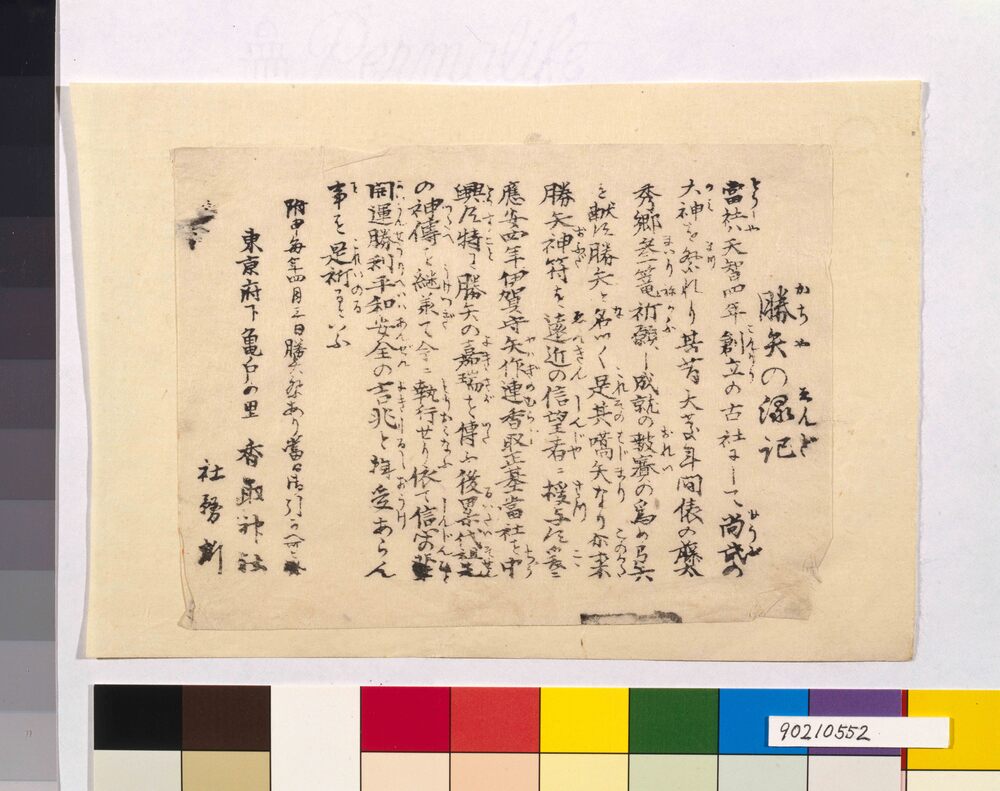 勝矢の縁記
當社ハ天智四年創立の古社にして尚武の
大神を祭れり其昔天慶年間俵の藤太
秀郷参篭祈願し成就の報賽の為め弓矢
を献じ勝矢と名づく是其嚆矢なり尓来
勝矢神符を遠近の信望者に授与す爰に
應安四年伊賀守矢作連香取正基當社を中
興し特に勝矢の嘉瑞を傳ふ後累代祖先
の神傳を継兼て今に執行せり依て信心の輩
開運勝利平和安全の吉兆と拝受あらん
事を是祈るといふ
附曰毎年四月三日勝矢祭あり當日
東京府下亀戸の里 香取神社
社務所
90210552